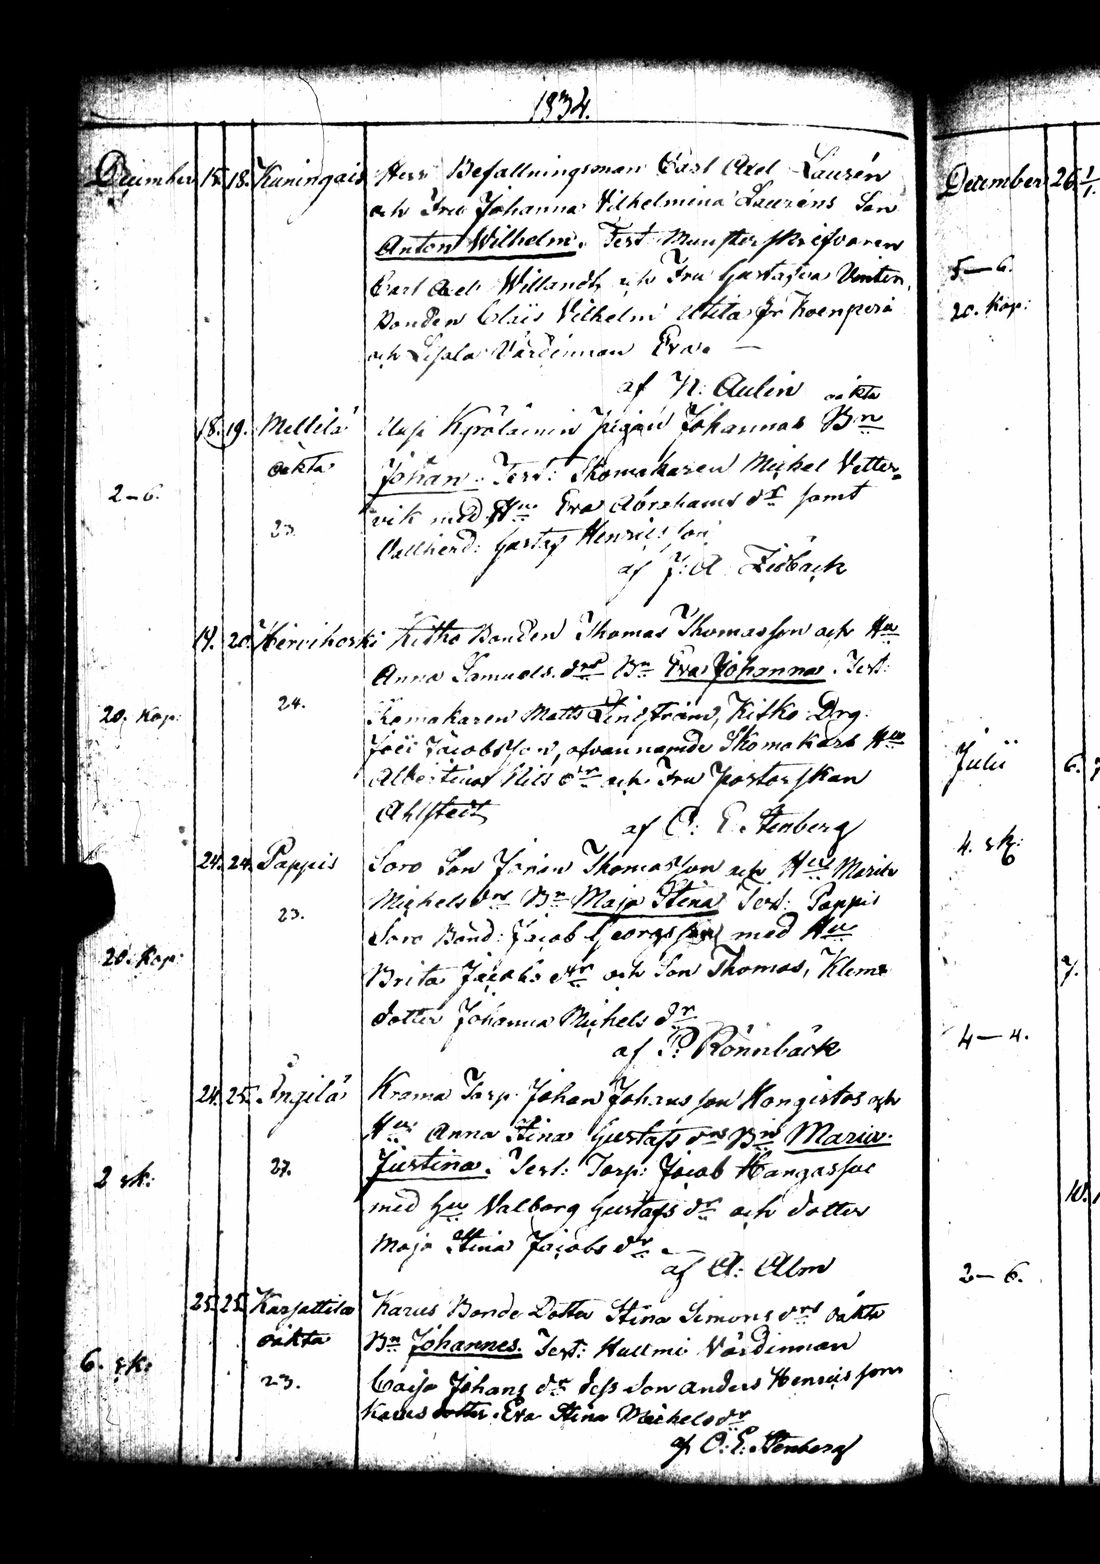 1834.
December 15. 18. Kuningais Herr Befallningsman Carl Axel Laurén
och Fru Johanna Vilhelmina Lauréns Son
Anton Wilhelm. Test: Munsterskrifvaren
Carl Axel Willandt och Fru Gustafva Winter,
Bonden Claës Vilhelm Utita fr.
och Lisala Värdinnan Eva. —
af N: Aulin
18. 19. Mellilä Pigan Johannas oäkta Bn
oäkta Johan. Test: Skomakaren Michel Vetter-
2—6. vik med Hu Eva Abrahams dr samt
23. Vallherd: Gustaf Henrics son
af J: A:
19. 20. Hirvikoski Kitko Bonden Thomas Thomasson och Hu
Anna Samuels. drs Bn Eva Johanna. Test:
24. Skomakaren Matts Lindström, Kitko Drg:
20. Kop: Jacobsson, ofvannamnde Skomakars Hu
Albertina Nils dr och Fru Pastorskan
Ahlstedt
af O: E. Stenberg
24. 24. Pappis Soro Son Johan Thomasson och Hu Maria
Michels drs Bn Maja Stina Test: Pappis
23. Soro Bond: Jacob Georgsson med Hu
20. Kop: Brita Jacobs dr och Son Thomas, Klems
dotter Johanna Michels dr
af P: Rönnbäck
24. 25. Ängilä Krama Torp: Johan Johansson Hongistos och
Hu: Anna Stina Gustafs drs Bn Maria
27. Justina. Test: Torp: Jacob
2 sk: med Hu Valborg Gustafs dr och dotter
Maja Stina Jacobs dr —
af A: Alm
25. 25. Karjattila Karus Bonde Dotter Stina Simons drs oäkta
oäkta Bn Johannes. Test: Hullmi Värdinnan
6. sk: 23. Caisa Johans dr dess son Anders Henricsson
Karus dotter Eva Stina Michels dr
af O: E. Stenberg
December 26.
5—6.
20. Kop:
Julii 6.
4. sk:
7.
4—4.
10.
2—6.